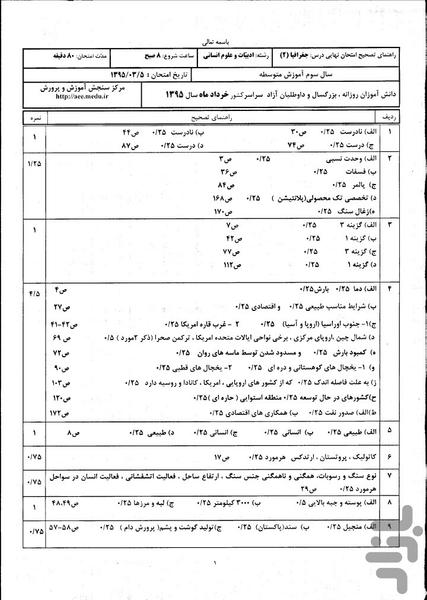 باسمه تعالی
راهنمای تصحیح امتحان نهایی درس: جغرافیا (۲) رشته: ادبیات و علوم انسانی ساعت شروع: ۸ صبح مدت امتحان: ۸۰ دقیقه
سال سوم آموزش متوسطه تاریخ امتحان: ۱۳۹۵/۰۳/۵
دانش آموزان روزانه ، بزرگسال و داوطلبان آزاد سراسر کشور خرداد ماه سال ۱۳۹۵ مرکز سنجش آموزش و پرورش
http://aee.medu.ir
ردیف راهنمای تصحیح نمره
۱ الف) نادرست ۰/۲۵ ص۳۰ ب) نادرست ۰/۲۵ ص۴۴
ج) درست ۰/۲۵ ص۷۴ د) درست ۰/۲۵ ص۸۷ ۱
۲ الف) وحدت نسبی ۰/۲۵ ص۳ ۱/۲۵
ب) فسفات ۰/۲۵ ص۳۶
ج) پالمر ۰/۲۵ ص۸۴
د) تخصصی تک محصولی(پلانتیشن ) ۰/۲۵ ص۱۶۸
ه)زغال سنگ ۰/۲۵ ص۱۷۰
۳ الف) گزینه ۳ ۰/۲۵ ص۷ ۱
ب) گزینه ۱ ۰/۲۵ ص۴۲
ج) گزینه ۳ ۰/۲۵ ص۷۷
د) گزینه ۱ ۰/۲۵ ص۱۱۲
۴ الف) دما ۰/۲۵ بارش۰/۲۵ ص۴ ۴/۵
ب) شرایط مناسب طبیعی ۰/۲۵ و اقتصادی ۰/۲۵ ص۲۷
ج)۱- جنوب اوراسیا (اروپا و آسیا) ۰/۲۵ ۲- غرب قاره امریکا ۰/۲۵ ص۴۲-۴۱
د) شمال چین ,اروپای مرکزی , برخی نواحی ایالات متحده امریکا , ترکمن صحرا (ذکر ۲مورد ) ۰/۵ ص ۶۹
ه) کمبود بارش ۰/۲۵ و مسدود شدن توسط ماسه های روان ۰/۲۵ ص۷۲
و) ۱- یخچال های کوهستانی و دره ای ۰/۲۵ ۲- یخچال های قطبی ۰/۲۵ ص۹۰
ز) به علت فاصله اندک ۰/۲۵ که از کشور های اروپایی , امریکا , کانادا و روسیه دارد ۰/۲۵ ص۱۰۳
ح)کشورهای در حال توسعه ۰/۲۵ منطقه استوایی ( حاره ای )۰/۲۵ ص۱۲۰
ط)الف) صدور نفت ۰/۲۵ ب) همکاری های اقتصادی ۰/۲۵ ص۱۷۲
۵ الف) طبیعی ۰/۲۵ ب) انسانی ۰/۲۵ ج) انسانی ۰/۲۵ د) طبیعی ۰/۲۵ ص۸ ۱
۶ کاتولیک , پروتستان , ارتدکس هرمورد ۰/۲۵ ص۱۷ ۰/۷۵
۷ نوع سنگ و رسوبات, همگنی و ناهمگنی جنس سنگ , ارتفاع ساحل , فعالیت آتشفشانی , فعالیت انسان در سواحل ۰/۷۵
هرمورد ۰/۲۵ ص۲۹
۸ الف) پوسته و جبه بالایی ۰/۵ ب) ۳۰۰۰ کیلومتر ۰/۲۵ ج) لبه و مرزها ۰/۲۵ ص۴۸،۴۹ ۱
۹ الف) منجیل ۰/۲۵ ب) سند(پاکستان) ۰/۲۵ ج)تولید گوشت و پشم( پرورش دام ) ۰/۲۵ ص۵۸-۵۷ ۰/۷۵
۱